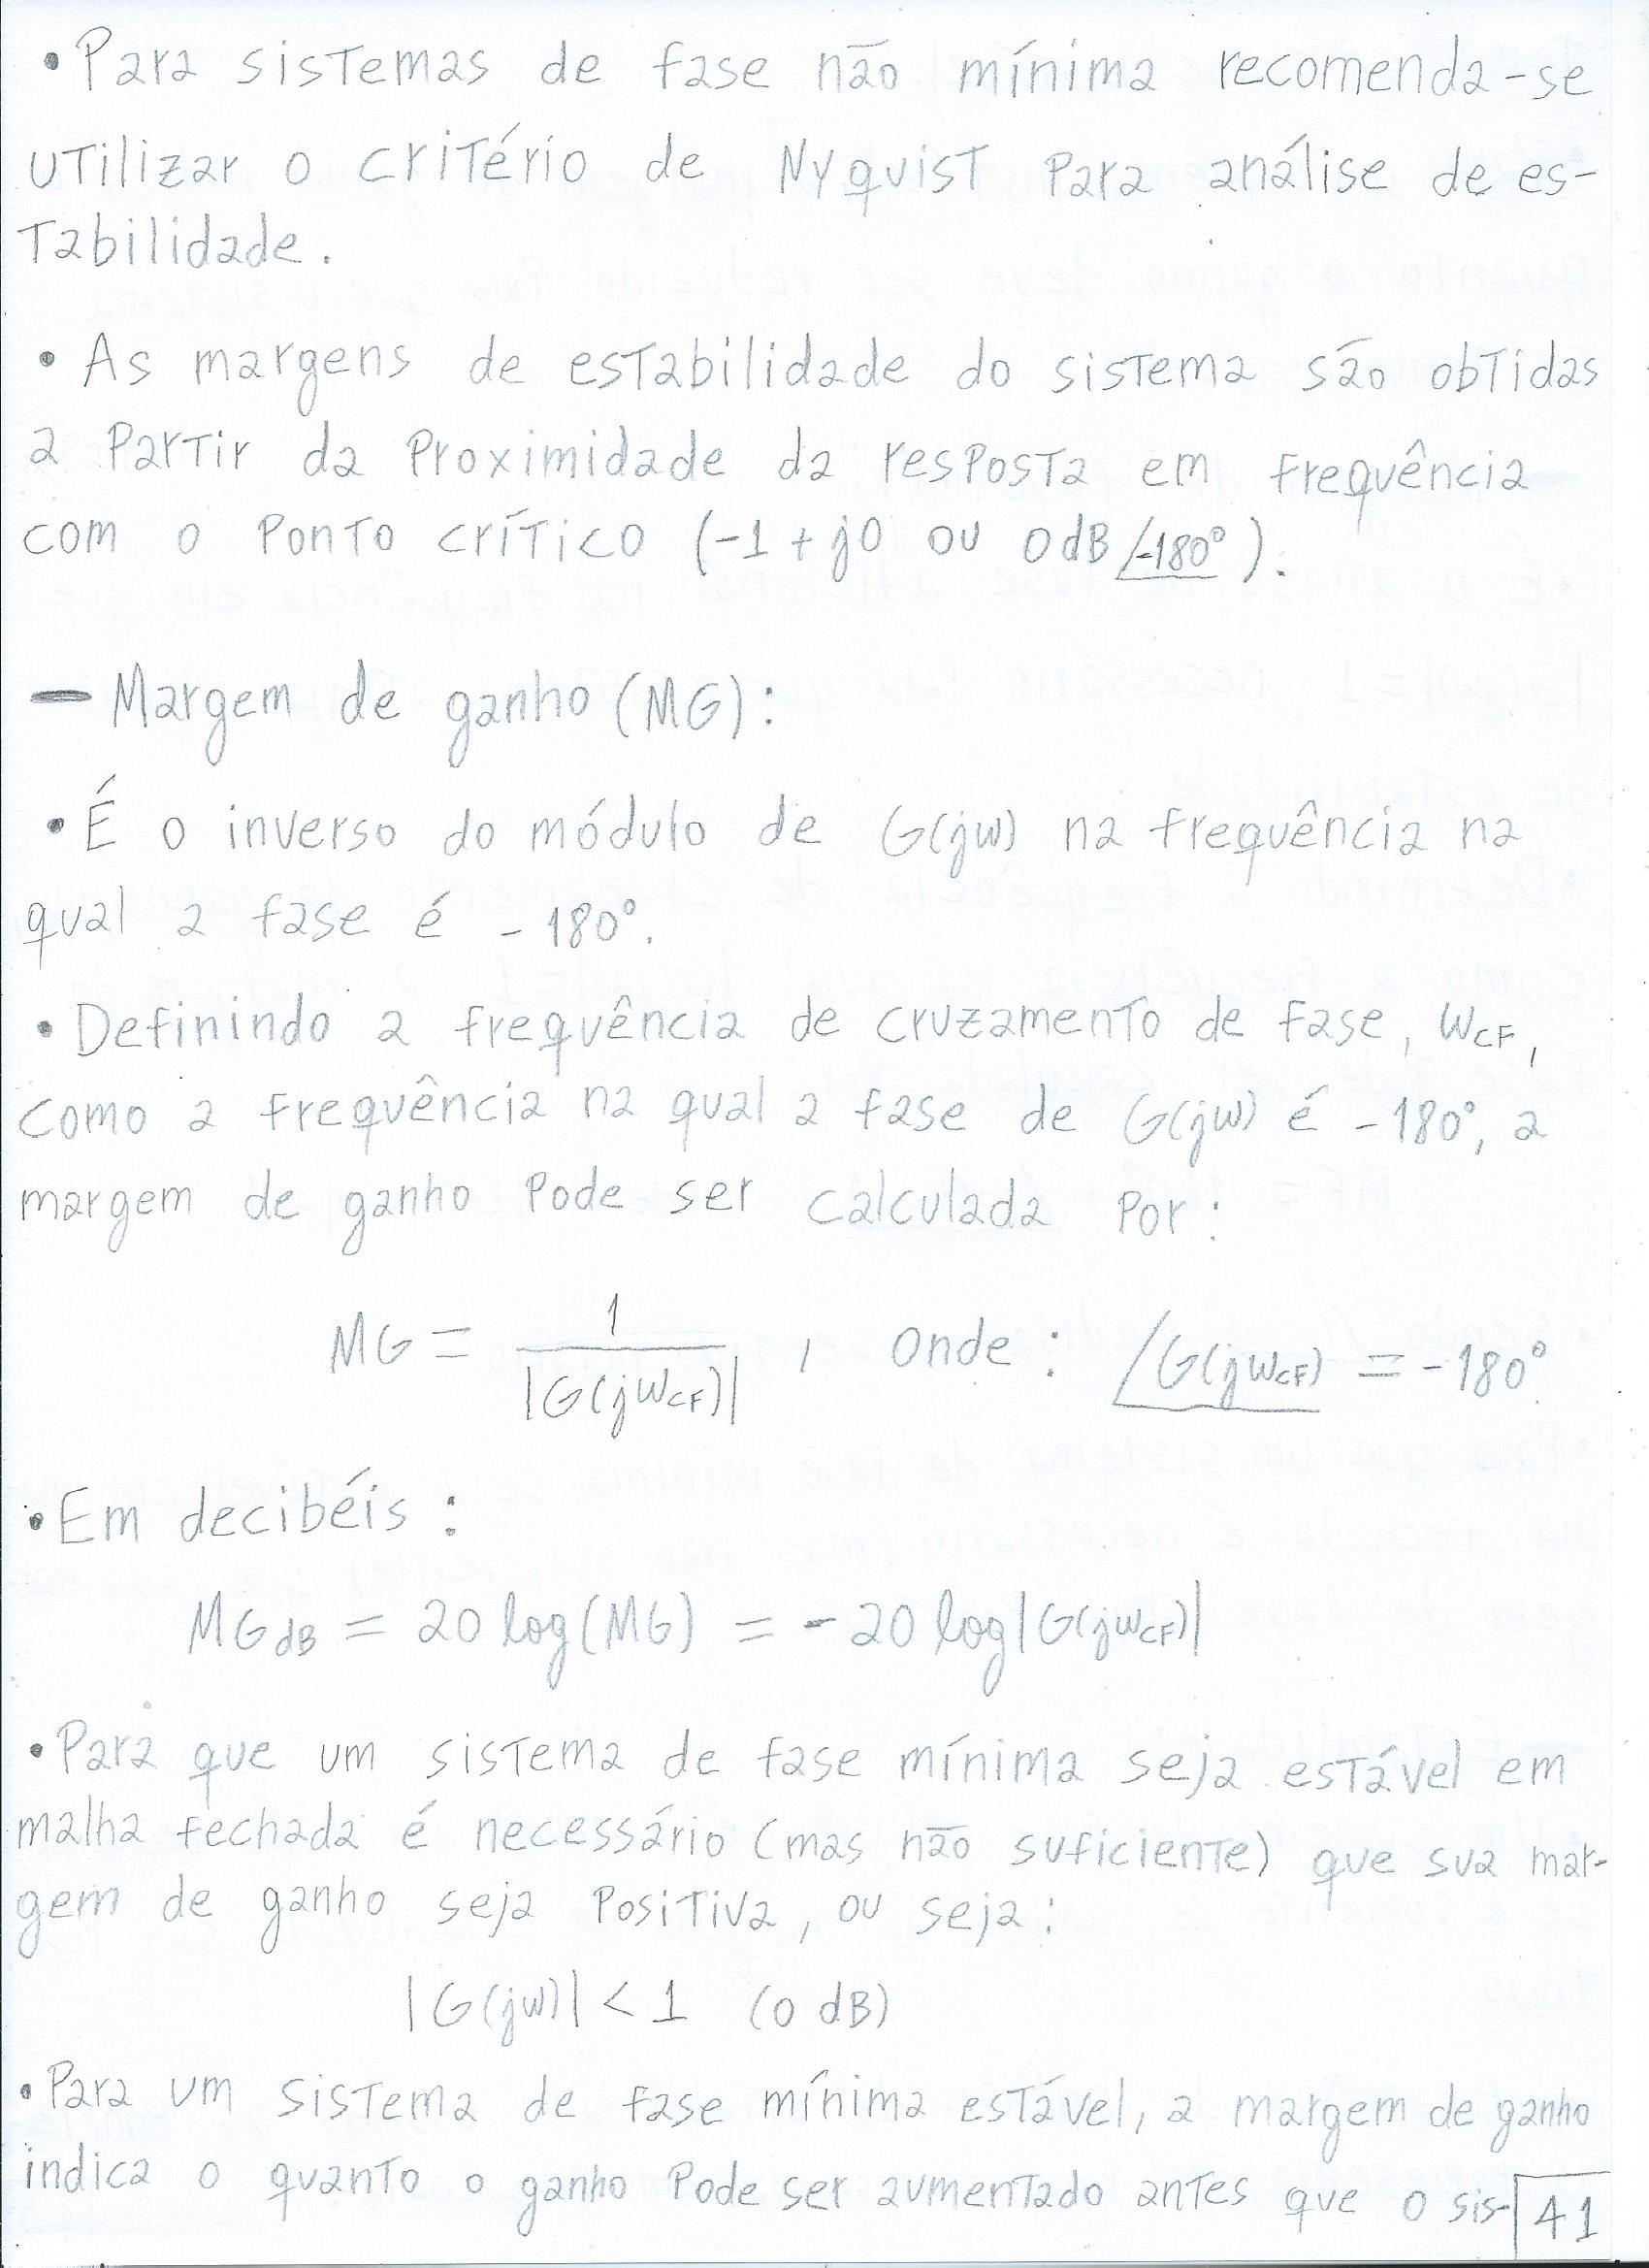 • Para sistemas de fase não mínima recomenda-se
utilizar o critério de Nyquist para análise de es-
tabilidade.
• As margens de estabilidade do sistema são obtidas
a partir da proximidade da resposta em frequência
com o ponto crítico (-1 + j0 ou 0 dB ∠-180°).
— Margem de ganho (MG):
• É o inverso do módulo de G(jw) na frequência na
qual a fase é -180°.
• Definindo a frequência de cruzamento de fase, W_CF,
como a frequência na qual a fase de G(jw) é -180°, a
margem de ganho pode ser calculada por:
MG = 1 / |G(jW_CF)| , onde: ∠G(jW_CF) = -180°.
• Em decibéis:
MG_dB = 20 log(MG) = -20 log|G(jW_CF)|
• Para que um sistema de fase mínima seja estável em
malha fechada é necessário (mas não suficiente) que sua mar-
gem de ganho seja positiva, ou seja:
|G(jw)| < 1 (0 dB)
• Para um sistema de fase mínima estável, a margem de ganho
indica o quanto o ganho pode ser aumentado antes que o sis-
41